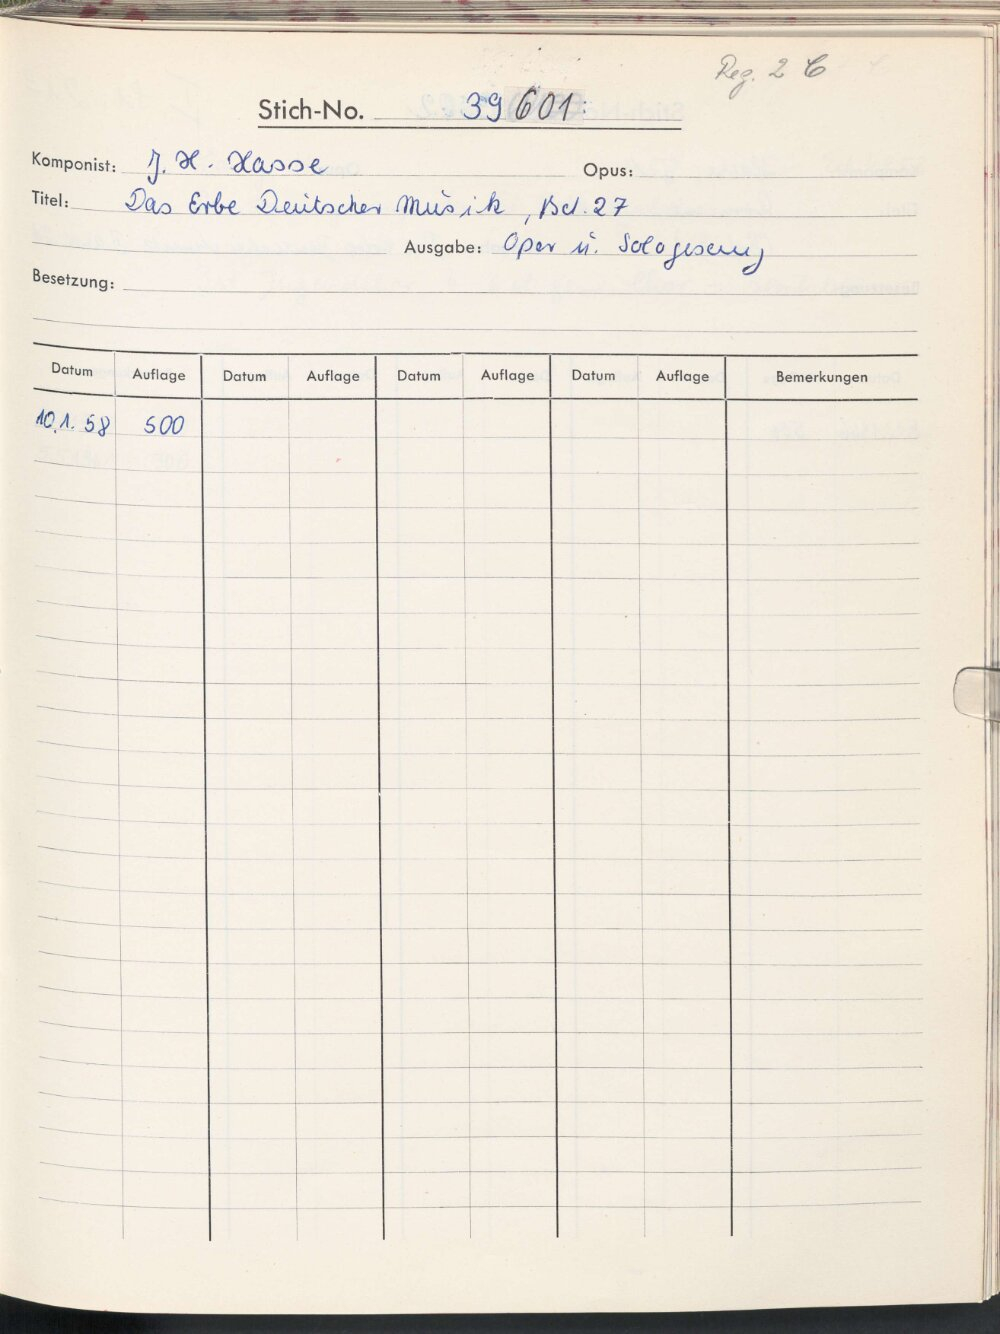 Reg. 2 C
Stich-No. 39 601
Komponist: J. H. Hasse Opus:
Titel: Das Erbe Deutscher Musik, Bd. 27
Ausgabe: Oper u. Sologesang
Besetzung:
Datum Auflage Datum Auflage Datum Auflage Datum Auflage Bemerkungen
10.1.58 500